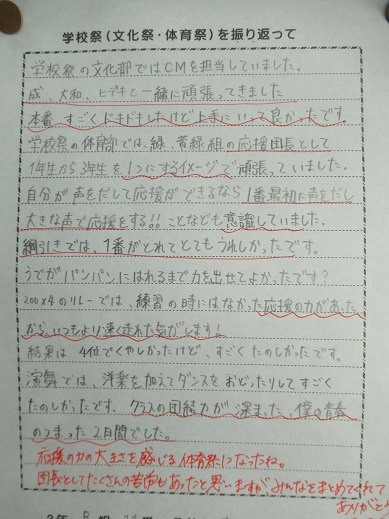 学校祭(文化祭・体育祭)を振り返って
学校祭の文化部ではCMを担当していました。
成、大和、ヒデキと一緒に頑張ってきました
本番、すごくドキドキしたけど上手にいって良かったです。
学校祭の体育部では、緑、黄緑組の応援団長として
1年生から3年生を1つにするイメージで頑張っていました。
自分が声をだして応援ができるなら1番最初に声をだし
大きな声で応援をする!!ことなども意識していました。
綱引きでは、1番がとれてとてもうれしかったです。
うでがパンパンにはれるまで力を出せてよかったです?
200×4のリレーでは、練習の時にはなかった応援の力があった
から、いつもより速く走れた気がします!
結果は4位でくやしかったけど、すごくたのしかったです。
演舞では、洋楽を加えてダンスをおどったりしてすごく
たのしかったです。クラスの団結力が深まった、僕の青春
のつまった2日間でした。
応援の力の大きさを感じる体育祭になったね。
団長としてたくさんの苦労もあったと思いますがみんなをまとめてくれて
ありがとう
3年 B 組